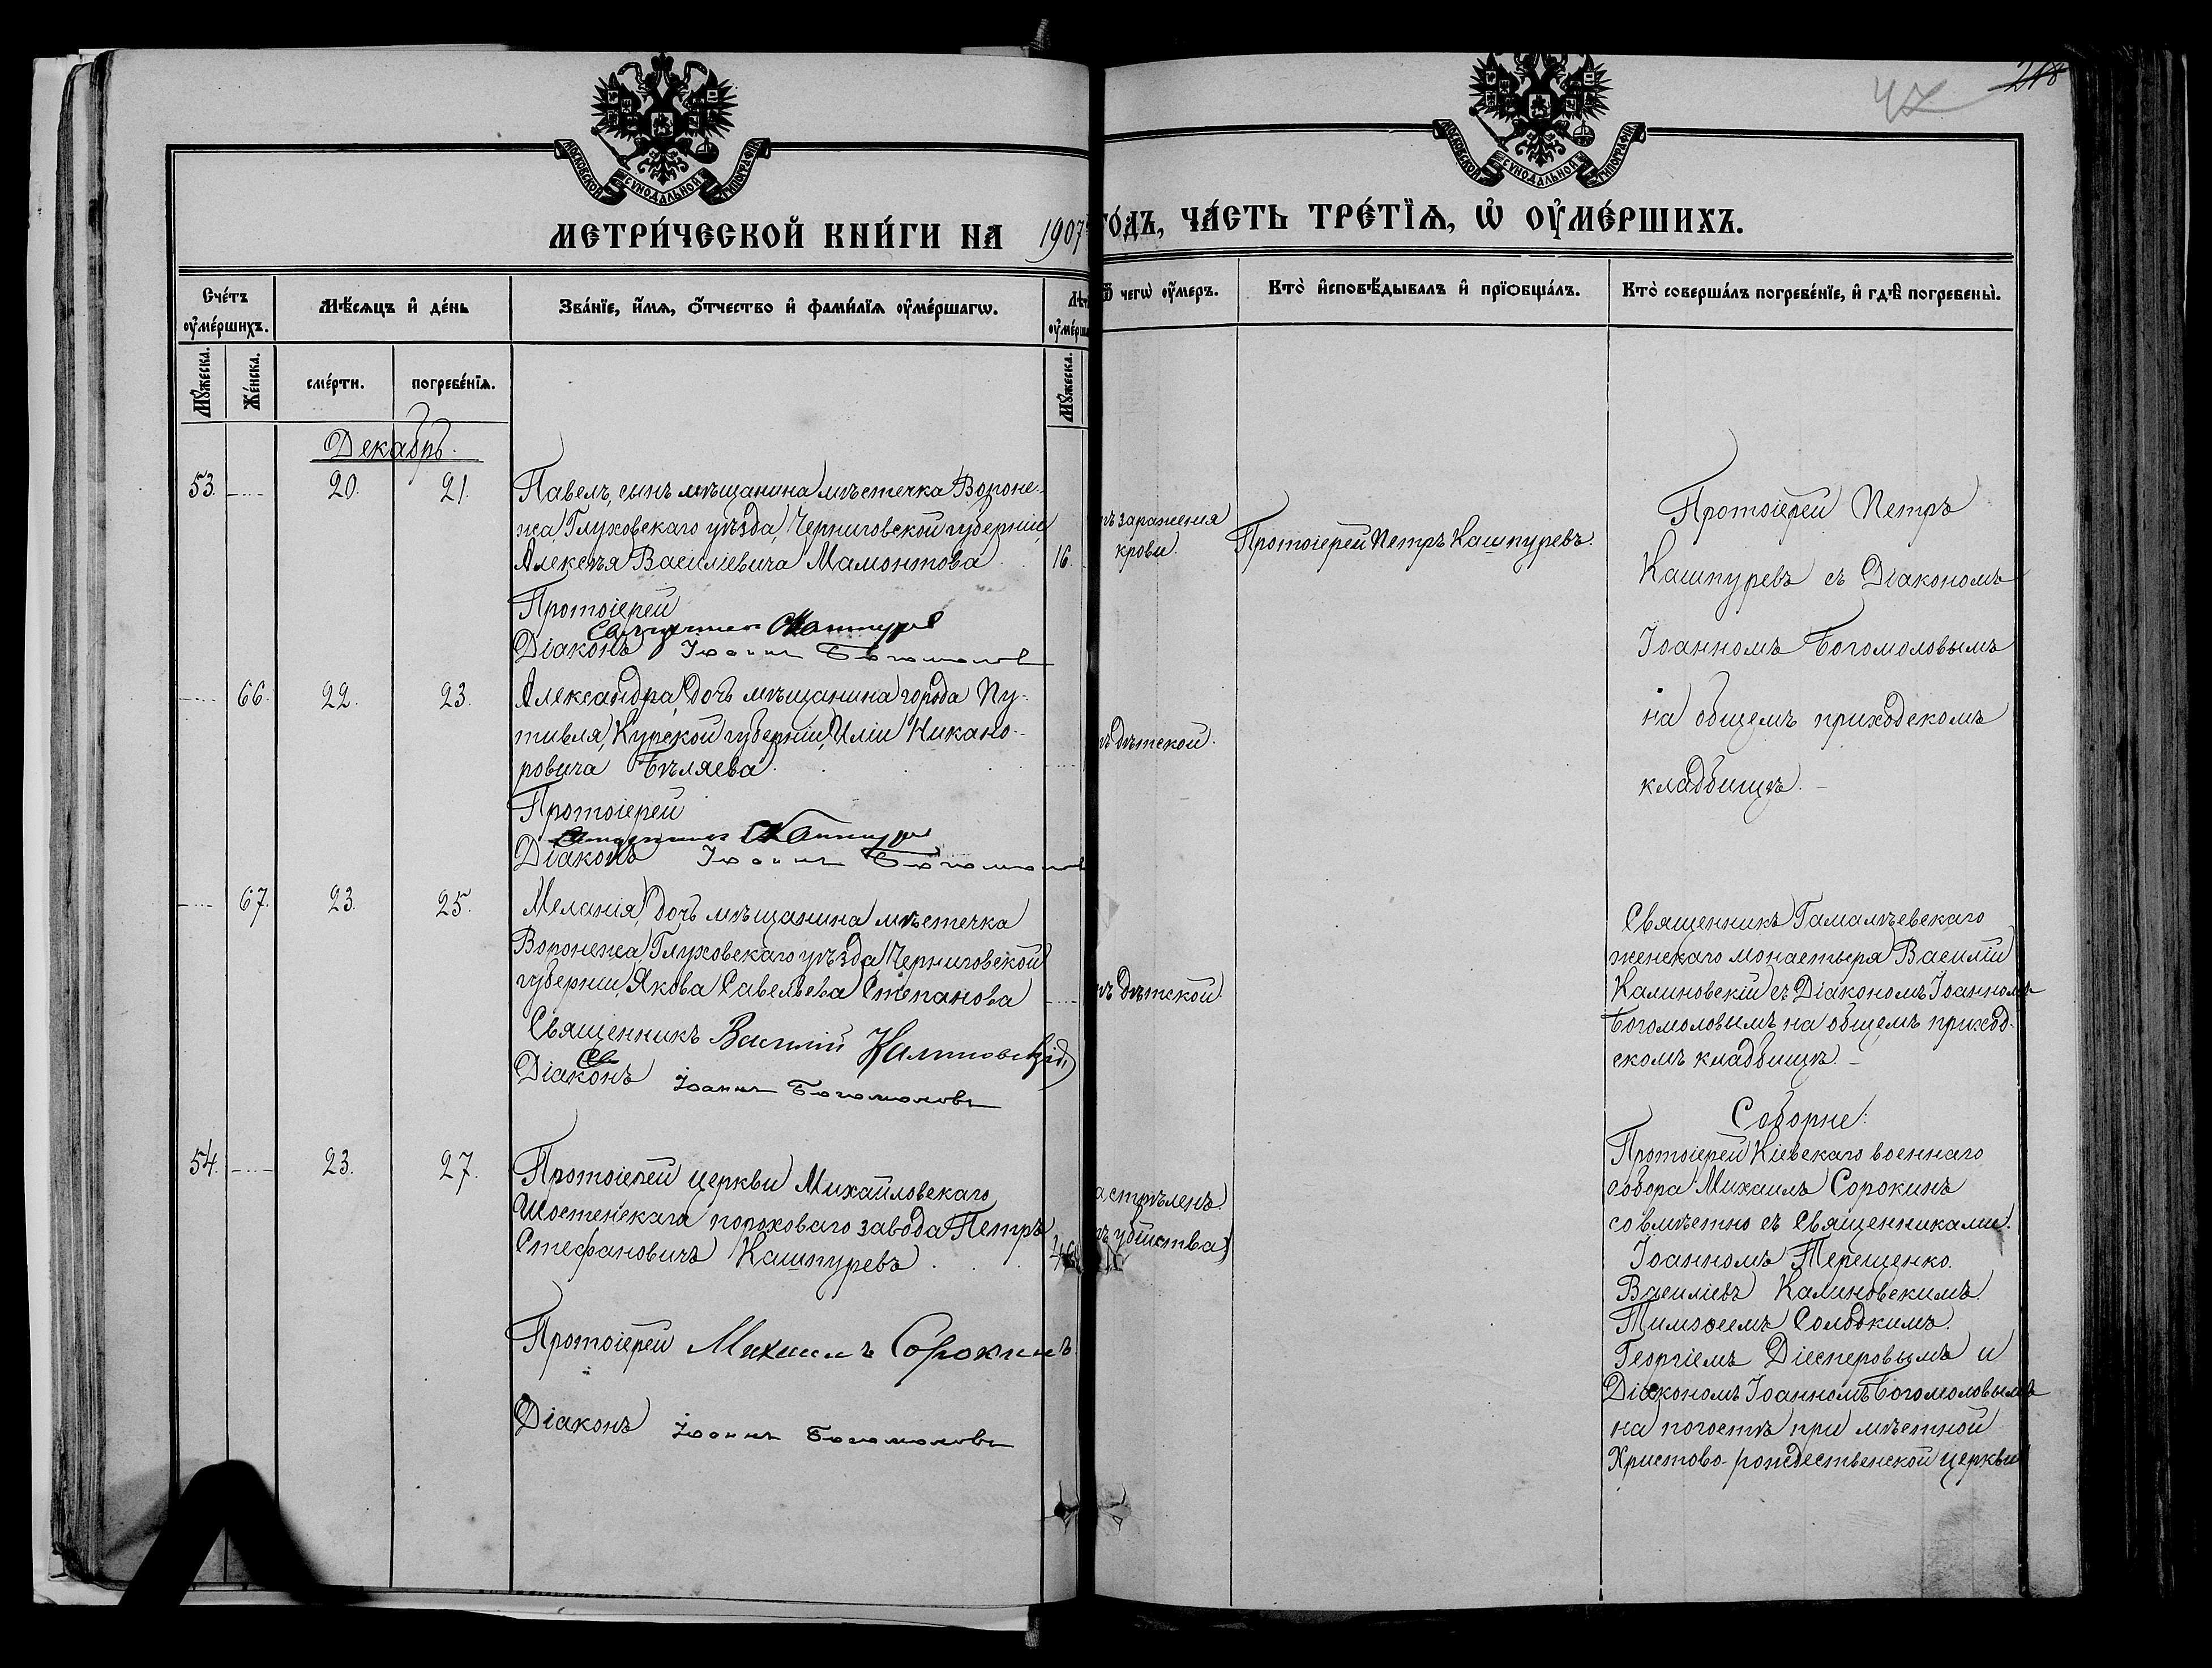 218
42
МОСКОВСКОЙ СѴНОДАЛЬНОЙ ТИПОГРАФІИ
МОСКОВСКОЙ СѴНОДАЛЬНОЙ ТИПОГРАФІИ
МЕТРИ́ЧЕСКОЙ КНИ́ГИ НА 1907 ГО́ДЪ, ЧА́СТЬ ТРЕ́ТЇѦ, Ѡ҆ ОУ҆МЕ́РШИХЪ.
Сче́тъ оу҆ме́ршихъ.
Мꙋ́жеска.
Же́нска.
Мѣ́сѧцъ и҆ де́нь
сме́рти.
погребе́нїѧ.
Зва́нїе, и҆́мѧ, ѻ҆́тчество и҆ фами́лїѧ оу҆ме́ршагѡ.
Мꙋ́жеска.
Ѿ чегѡ̀ оу҆́меръ.
Кто̀ и҆сповѣ́дывалъ и҆ прїѡбща́лъ.
Кто̀ соверша́лъ погребе́нїе, и҆ гдѣ̀ погребены̀.
Декабрь.
53. 20. 21.
Павелъ, сынъ мѣщанина мѣстечка Вороне-
жа, Глуховскаго уѣзда, Черниговской губерніи,
Алексѣя Василіевича Мамонтова 16.
Протоіерей
Діаконъ Іоаннъ Богомоловъ
заражения
крови.
Протоіерей Петръ Кашпуревъ.
Протоіерей Петръ
Кашпуревъ съ Діакономъ
Іоанномъ Богомоловымъ
на общемъ приходскомъ
кладбищѣ.
66. 22. 23.
Александра, дочь мѣщанина города Пу-
тивля, Курской губерніи, Иліи Никано-
ровича Бѣляева.
Протоіерей
Діаконъ Іоаннъ Богомоловъ
дѣтской.
67. 23. 25.
Меланія, дочь мѣщанина мѣстечка
Воронежа, Глуховскаго уѣзда, Черниговской
губерніи, Якова Савельева Степанова
Священникъ Василій Калиновскій
Діаконъ Іоаннъ Богомоловъ
дѣтской.
Священникъ Гамалѣевскаго
женскаго монастыря Василій
Калиновскій съ Діакономъ Іоанномъ
Богомоловымъ на общемъ приход-
скомъ кладбищѣ.
54. 23. 27.
Протоіерей церкви Михайловскаго
Шостенскаго пороховаго завода Петръ
Стефановичъ Кашпуревъ
Протоіерей Михаилъ Сорокинъ
Діаконъ Іоаннъ Богомоловъ
астрѣленъ.
убійства)
Соборне:
Протоіерей Кіевскаго военнаго
собора Михаилъ Сорокинъ
совмѣстно съ Священниками:
Іоанномъ Терещенко.
Василіевъ Калиновскимъ.
Тимоѳеемъ Солодкимъ.
Георгіемъ Діесперовымъ и
Діакономъ Іоанномъ Богомоловымъ
на погостѣ при мѣстной
Христово-рождественской церкви